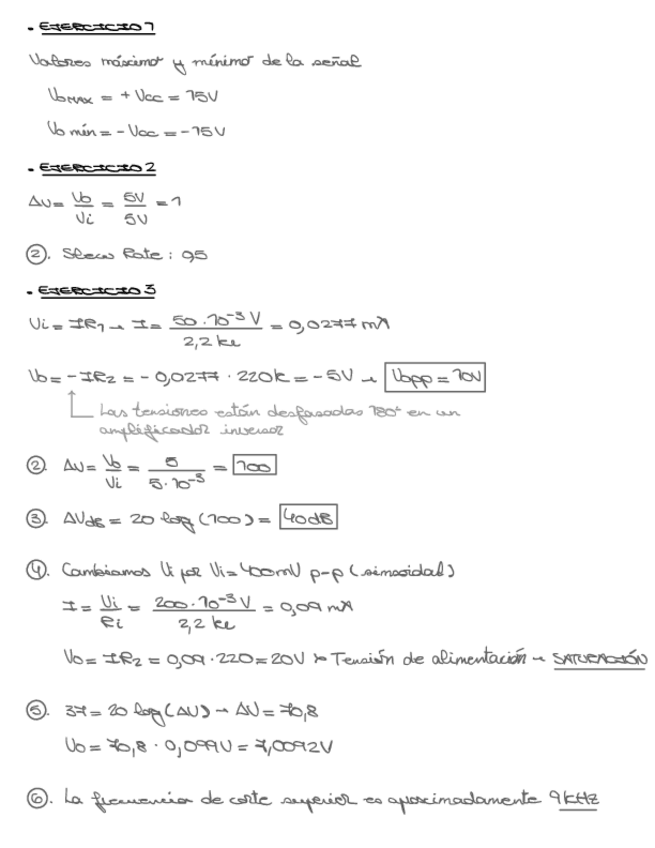 . EJERCICIO 1
Valores máximo y mínimo de la señal
Vo MAX = + Vcc = 15V
Vo mín = - Vcc = -15V
. EJERCICIO 2
ΔV = Vo/Vi = 5V/5V = 1
②. Slew Rate: 95
. EJERCICIO 3
Vi = IR1 → I = 50·10⁻³ V / 2,2 kΩ = 0,0277 mA
Vo = - IR2 = - 0,0277 · 220k = -5V → Vopp = 10V
Las tensiones están desfasadas 180° en un
amplificador inversor
② ΔV = Vo/Vi = 5 / 5·10⁻³ = 100
③. ΔVdB = 20 log (100) = 40dB
④. Cambiamos Vi por Vi = 400mV p-p (sinusoidal)
I = Vi/Ri = 200·10⁻³ V / 2,2 kΩ = 0,09 mA
Vo = IR2 = 0,09 · 220 = 20V > Tensión de alimentación → SATURACIÓN
⑤. 37 = 20 log (ΔV) → ΔV = 70,8
Vo = 70,8 · 0,099V = 7,0092V
⑥. La frecuencia de corte superior es aproximadamente 9kHz